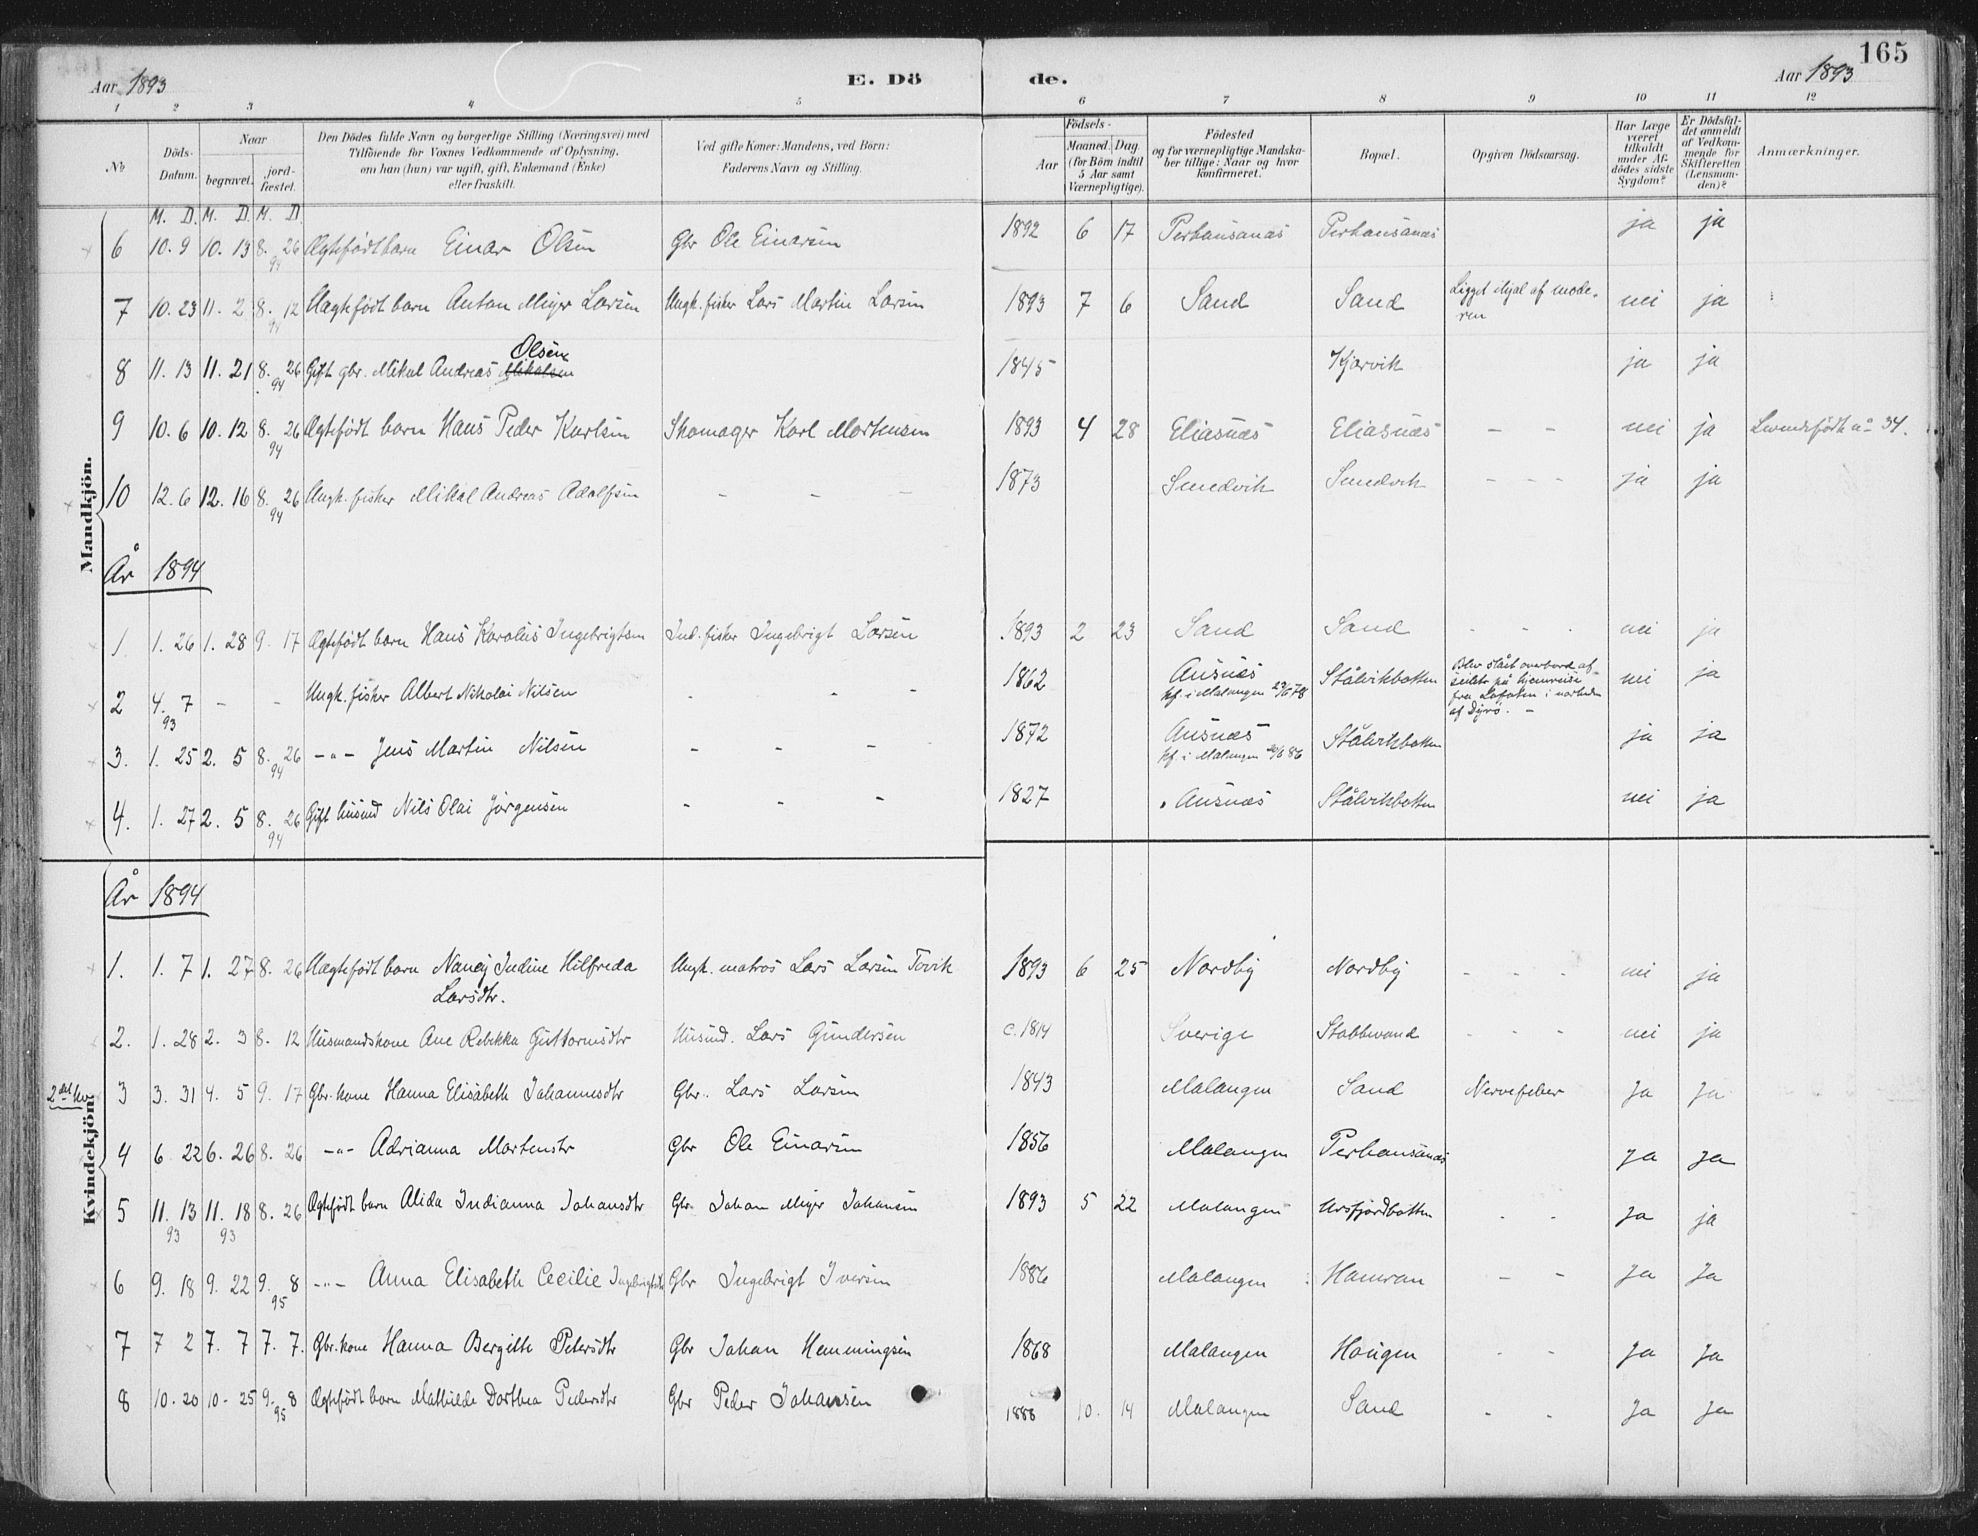 165
Aar 1893 E. Dö de. Aar 1893
1 2 3 4 5 6 7 8 9 10 11 12
No. Döds-Datum. Naar begravet. jord-fæstet. Den Dödes fulde Navn og borgerlige Stilling (Næringsvei) med Tilföiende for Voxnes Vedkommende af Oplysning, om han (hun) var ugift, gift, Enkemand (Enke) eller fraskilt. Ved gifte Koner: Mandens, ved Börn: Faderens Navn og Stilling. Födsels- Aar Maaned. Dag (for Börn indtil 5 Aar samt Værnepligtige). Födested og for værnepligtige Mandskaber tillige: Naar og hvor konfirmeret. Bopæl. Opgiven Dödsaarsag. Har Læge været tilkaldt under Afdödes sidste Sygdom? Er Dödsfaldet anmeldt af Vedkommende for Skifteretten (Lensmanden)? Anmærkninger.
Mandkjön.
M. D. M. D. M. D.
6 10. 9 10. 13 8. 26 94 Ægtefødt barn Einar Olsen Gbr Ole Einarsen 1892 6 17 Perhansanæs Perhansanæs ja ja
7 10. 23 11. 2 8. 12 94 Uægtefødt barn Anton Meyer Larsen Ungk. fisker Lars Martin Larsen 1893 7 6 Sand Sand Ligget ihjel af moderen nei ja
Olsen
8 11. 13 11. 21 8. 26 94 Gift gbr. Mikal Andreas Mikalsen 1845 Kjarvik ja ja
9 10. 6 10. 12 8. 26 94 Ægtefødt barn Hans Peder Karlsen Skomager Karl Mortensen 1893 4 28 Eliasnæs Eliasnæs - - nei ja Levendefødt no 34.
10 12. 6 12. 16 8. 26 94 Ungk. fisker Mikal Andreas Adolfsen - - - 1873 - - - ja ja
År 1894
1. 1. 26 1. 28 9. 17 Ægtefødt barn Hans Karolus Ingebrigtsen Ind. fisker Ingebrigt Larsen 1893 2 23 Sand Sand - - - nei ja
2 4. 7 93 - - Ungk. fisker Albert Nikolai Nilsen - - - 1862 Ausnæs kf. i Malangen 78 Stålvikbotten Blev slået overbord af seilet på hjemreise fra Lofoten i nærheden af Dyrø. - nei ja
3. 1. 25 2. 5 8. 26 94 -"- Jens Martin Nilsen - - - 1872 Ausnæs kf. i Malangen 86 Stålvikbotten ja ja
4. 1. 27 2. 5 8. 26 94 Gift husmd Nils Olai Jørgensen - - - 1827 Ausnæs Stålvikbotten nei ja
Kvindekjön.
År 1894
1. 1. 7 1. 27 8. 26 Uægtefødt barn Nancy Indine Hilfreda Larsdtr. Ungk. matros Lars Larsen Tovik 1893 6 25 Nordby Nordby - - - nei ja
2. 1. 28 2. 3 8. 12 Husmandskone Ane Rebekka Guttormsdtr Husmd. Lars Gundersen c. 1814 Sverige Stabbevand - - - nei ja
3 3. 31 4. 5 9. 17 Gbr. kone Hanna Elisabeth Johannesdtr Gbr. Lars Larsen 1843 Malangen Sand Nervefeber Ja Ja
4 6 22 6. 26 8. 26 -"- Adrianna Mortensdtr Gbr Ole Einarsen 1856 Malangen Perhansanæs Ja Ja
5 11. 13 93 11. 18 93 8. 26 Ægtefødt barn Alida Indianna Johansdtr Gbr. Johan Meyer Johansen 1893 5 22 Malangen Ursfjordbotten - - Ja ja
6 9. 18 9. 22 9. 8 95 -"- Anna Elisabeth Cecilie Ingebrigtsdtr Gbr Ingebrigt Iversen 1886 Malangen Hamran - - Ja Ja
7 7 2 7. 7 7. 7. Gbr. kone Hanna Bergitte Petersdtr Gbr Johan Hemmingsen 1868 Malangen Haugen - - Ja Ja
8 10. 20 10. 25 9. 8 95 Ægtefødt barn Mathilde Dorthea Pedersdtr Gbr Peder Johansen 1888 10. 14 Malangen Sand - - Ja Ja